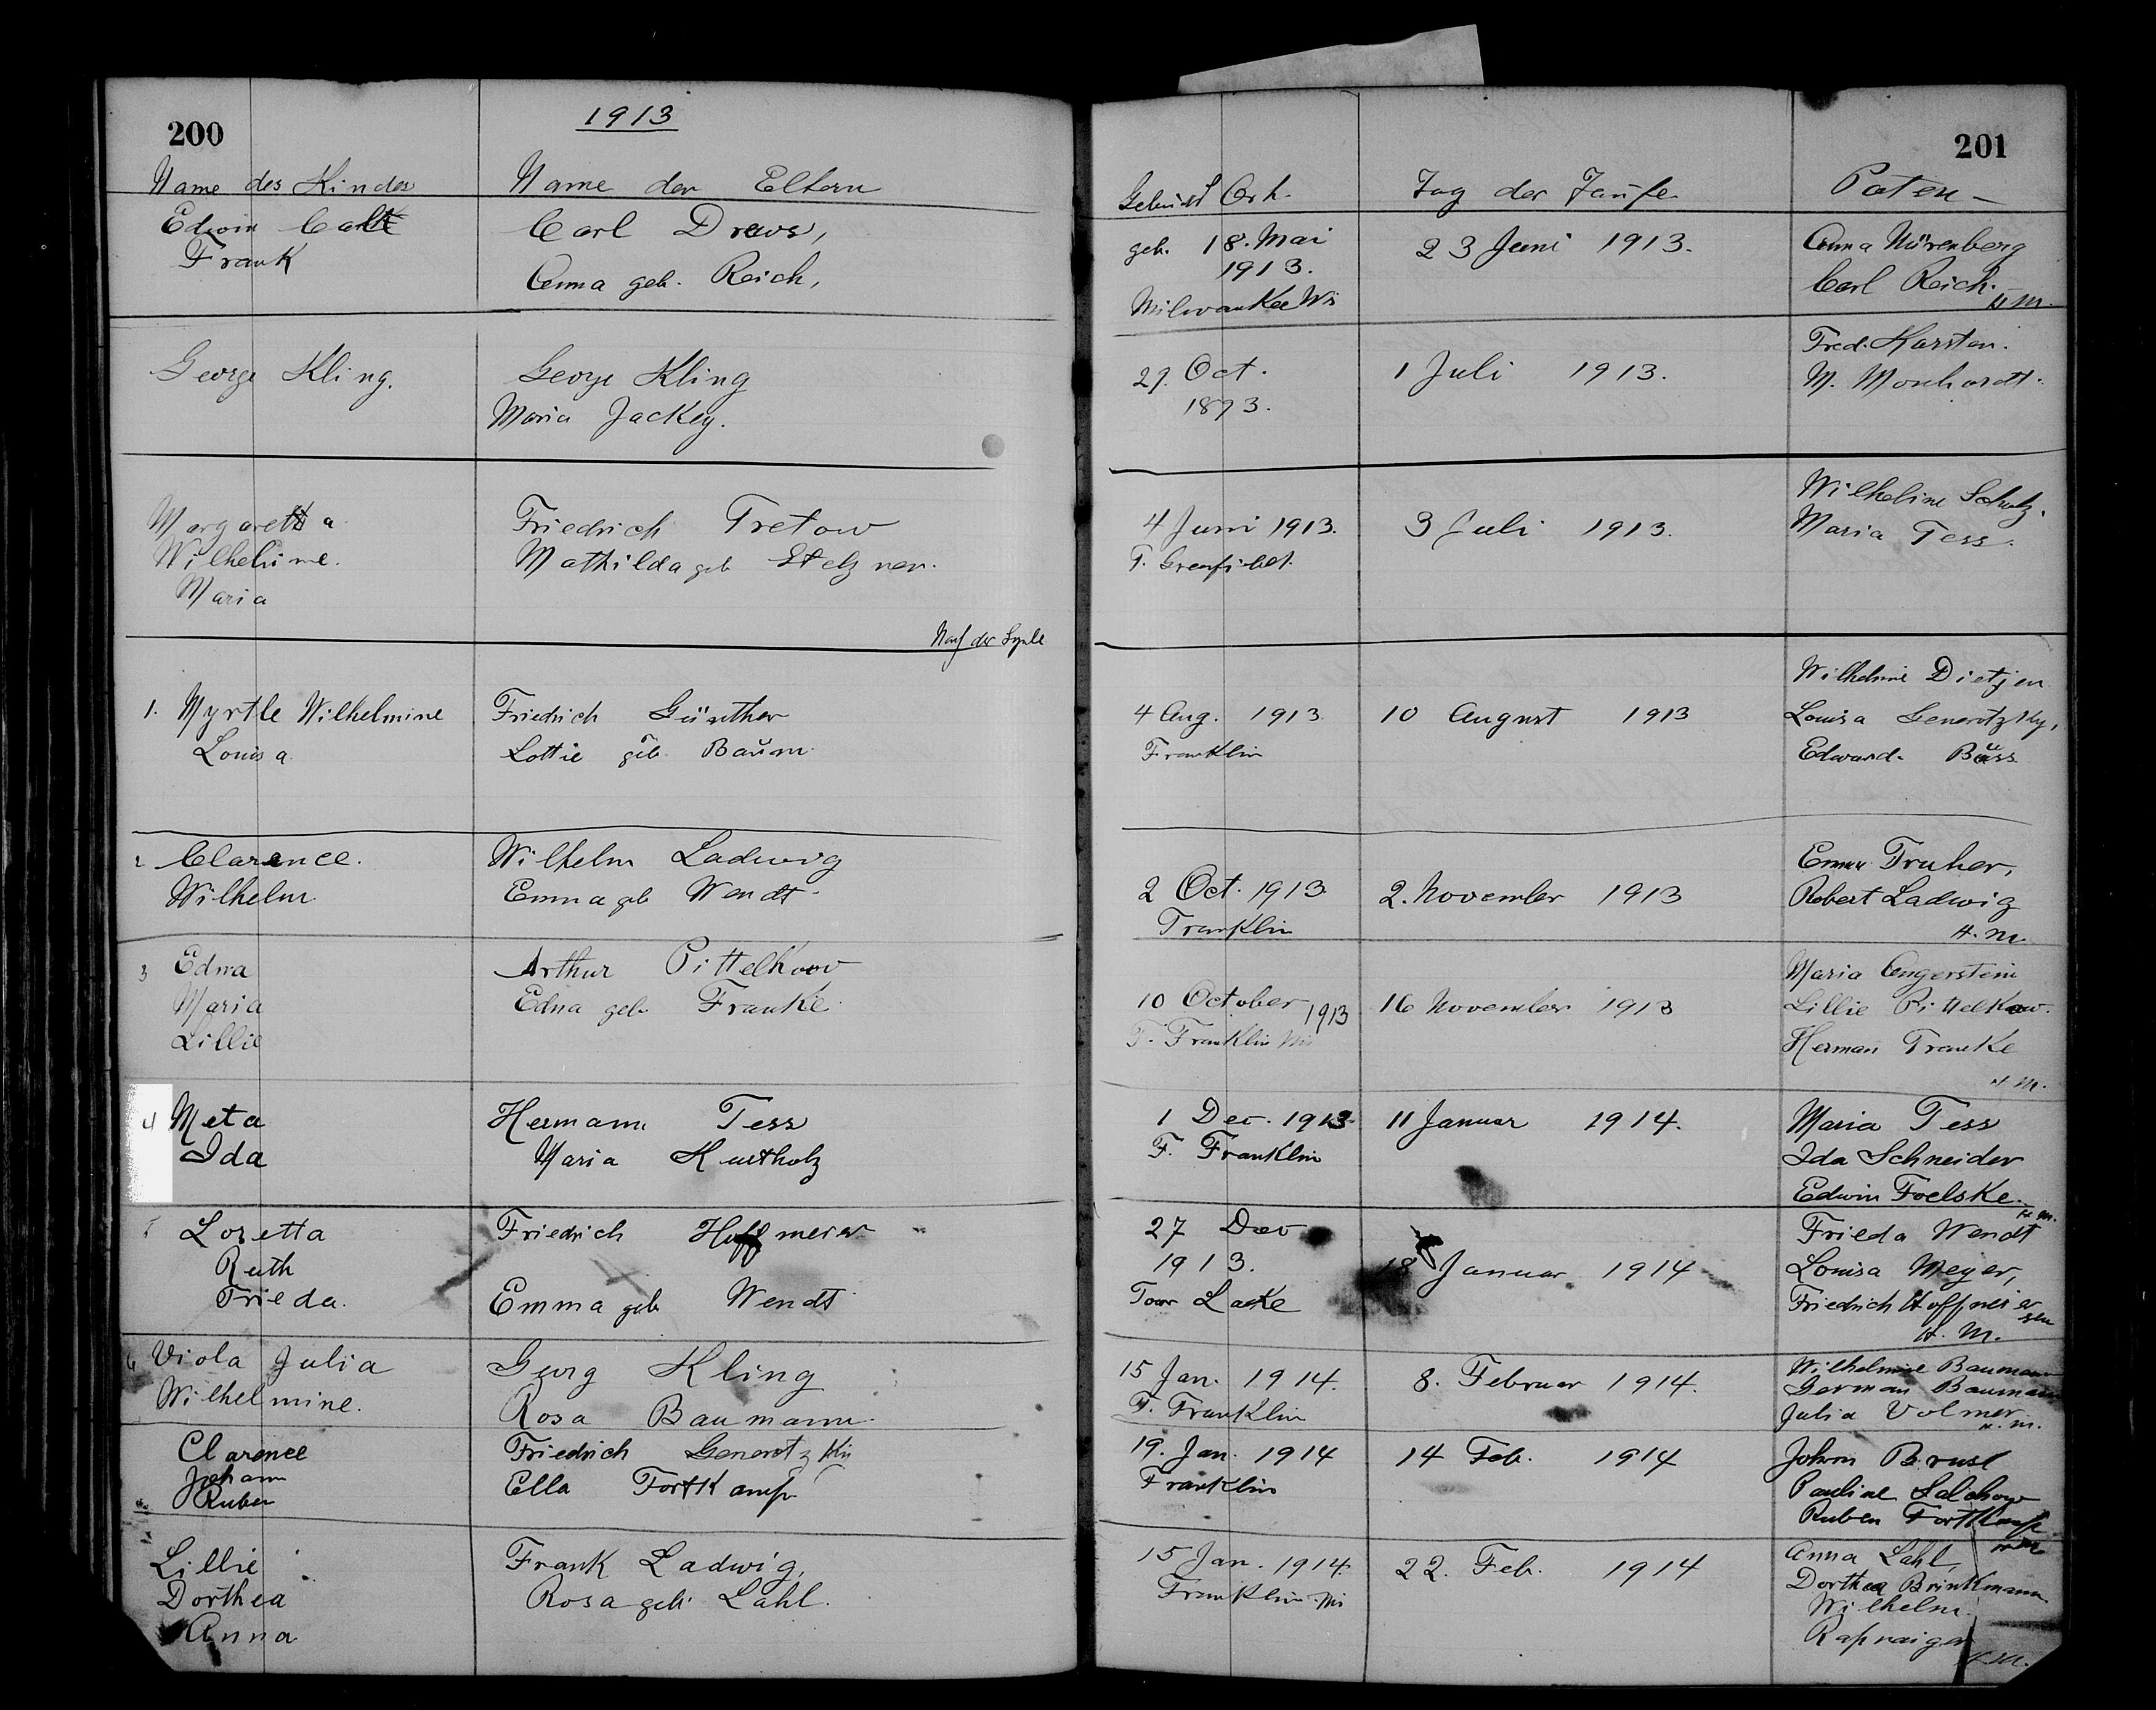 200
1913
Name des Kindes
Name der Eltern
Edwin Carl
Frank
Carl Drews,
Anna geb. Reich,
George Kling.
George Kling
Maria Jackey.
Margaretta
Wilhelmine.
Maria
Friedrich Tretow
Mathilda geb Stelzner.
Nach der Synode
1. Myrtle Wilhelmine
Louisa
Friedrich Günther
Lottie geb. Baum
2 Clarence.
Wilhelm
Wilhelm Ladwig
Emma geb Wendt
3 Edna
Maria
Lillie
Arthur Pittelkow
Edna geb Franke
4 Meta
Ida
Hermann Tess
Maria Kurtholz
Loretta
Ruth
Frieda.
Friedrich Hoffmeier
Emma geb Wendt
6 Viola Julia
Wilhelmine.
Georg Kling
Rosa Baumann
Clarence
Johann
Ruben
Friedrich Generotzky
Ella Fortkamp
Lillie
Dorthea
Anna
Frank Ladwig,
Rosa geb. Lahl.
201
Geburt Ort.
Tag der Taufe
Paten
geb. 18. Mai
1913.
Milwaukee Wis
23 Juni 1913.
Anna Nürenberg
Carl Reich.
H. M.
29. Oct.
1893.
1 Juli 1913.
Fred. Karsten.
M. Monhardt.
4 Juni 1913.
T. Greenfield.
3 Juli 1913.
Wilheline Schulz.
Maria Tess.
4 Aug. 1913
Franklin
10 August 1913
Wilhelmine Dietjen
Louisa Generotzsky,
Edward. Buss
2 Oct. 1913
Franklin
2. November 1913
Emma Truher,
Robert Ladwig
H. M.
10 October 1913
T. Franklin Wis
16 November 1913
Maria Angerstein
Lillie Pittelkow.
Herman Franke
H. M.
1 Dec. 1913
T. Franklin
11 Januar 1914.
Maria Tess
Ida Schneider
Edwin Foelske.
H. M.
27 Dec
1913.
Town Lake
18 Januar 1914
Frieda Wendt
Louisa Meyer,
Friedrich Hoffmeier
sen
H. M.
15 Jan. 1914.
T. Franklin
8. Februar 1914.
Wilhelmine Baumann
German Baumann
Julia Volmer
H. M.
19. Jan. 1914
Franklin
14 Feb. 1914
John Brust
Pauline Salchow
Ruben Fortkamp
15 Jan. 1914.
Franklin Wis
22. Feb. 1914
Anna Lahl,
Dorthea Brinkmann
Wilhelm
H. M.